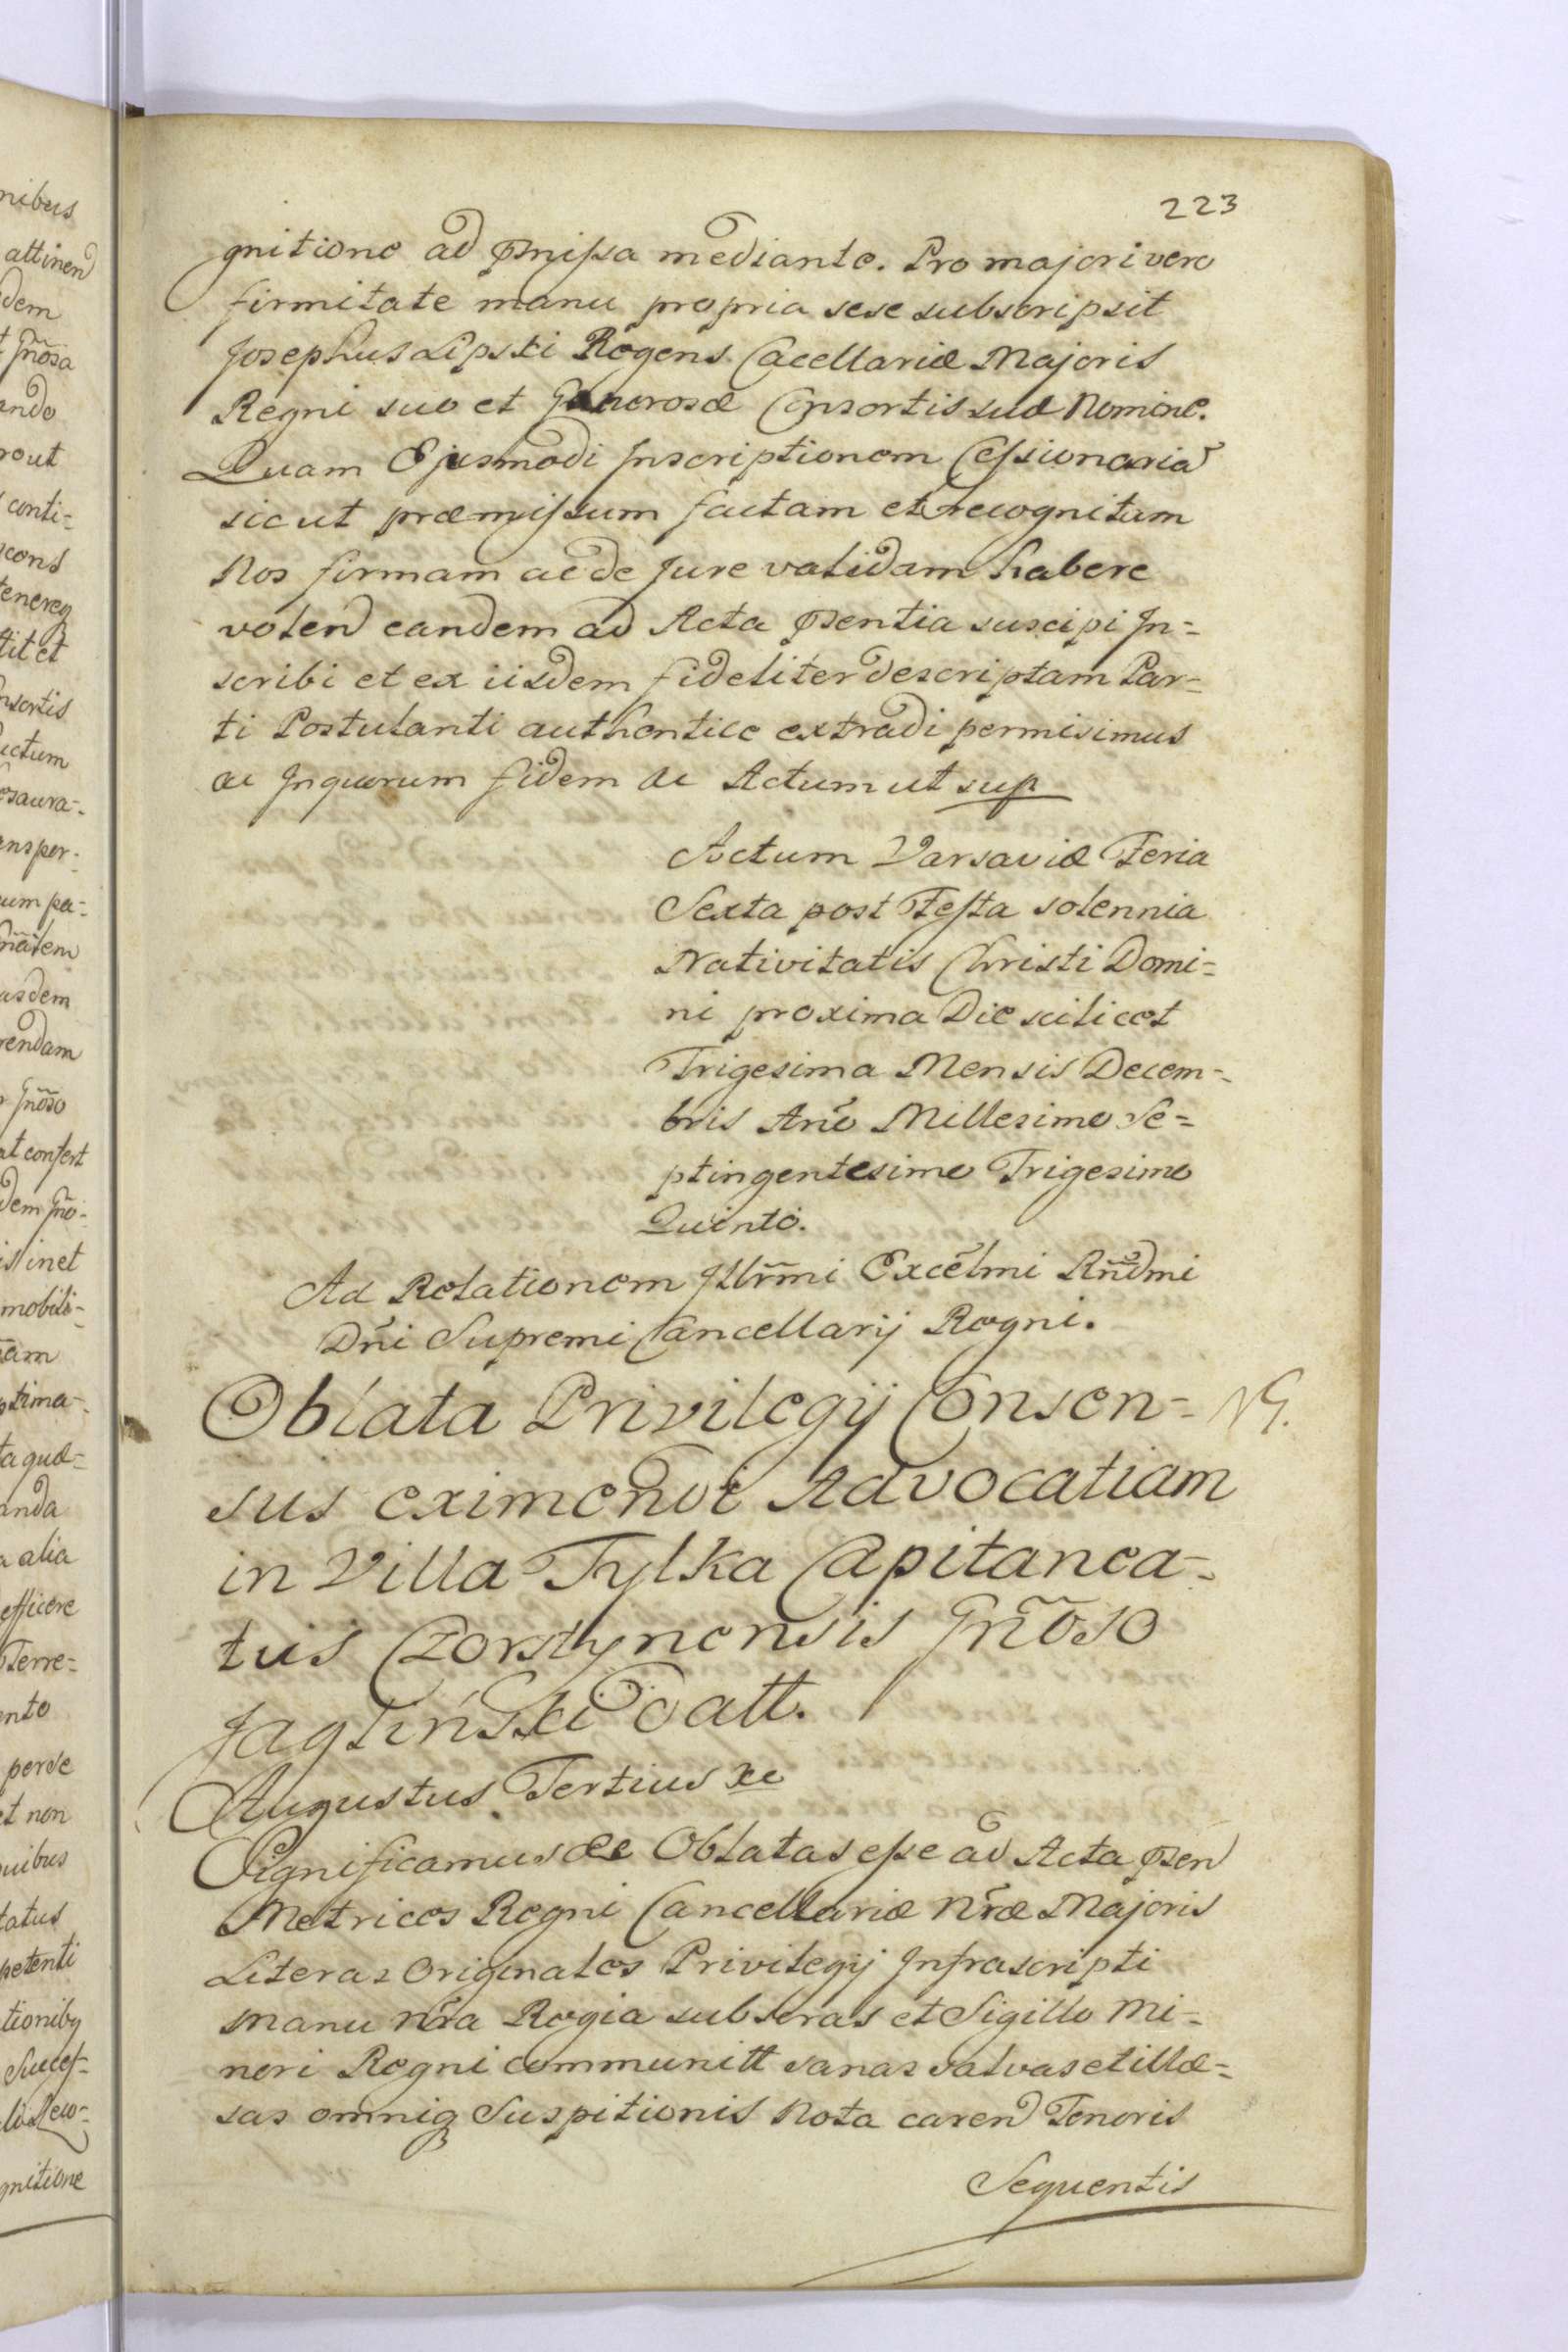 223
gnitione ad pnissa mediante. Pro majori vero
firmitate manu propria sese subscripsit
Josephus Lipski Regens Cacellariæ Majoris
Regni suo et Generosæ Consortis suæ Nomine.
Quam Ejusmodi Inscriptionem Cessionariã
sicut præmissum factam et recognitam
Nos firmam ac de Jure validam habere
volen̄ eandem ad Acta p̄sentia suscipi In=
scribi et ex iisdem fideliter descriptam Par=
ti Postulanti authentice extradi permisimus
ac Inquorum fidem ac Actum ut sup
Actum Varsaviæ Feria
Sexta post Festa solennia
Nativitatis Christi Domi=
ni proxima Die scilicet
Trigesima Mensis Decem=
bris Anō Millesimo Se=
ptingentesimo Trigesimo
Quinto.
Ad Relationem Illrm̃i Excel̃mi Rñdmi
Dñi Supremi Cancellarij Regni.
Oblata Privilegij Consen= NG.
sus eximendi Advocatiam
in Villa Tylka Capitanea=
tus Czorstynensis Gñoso
Jagliński datt.
Augustus Tertius &c
Significamus &c Oblatas esse ad Acta p̄sen̄
Metrices Regni Cancellariæ Nr̃æ Majoris
Literas Originales Privilegij Infrascripti
manu nr̃a Regia subscras et Sigillo Mi=
nori Regni communitt sanas salvas et illæ=
sas omniq suspitionis Nota caren̄ Tenoris
Sequentis
nibus
attinen̄
dem
Gñosa
ando
rout
conti=
tit et
nsortis
ctum
um pa=
usdem
rendam
Gñoso
at confert
dem Gño=
inet
mobili=
tima=
ta quæ=
anda
alia
efficere
Terre=
ento
perse
et non
uibus
tatus
petenti
tioniby
Succes=
gnitione